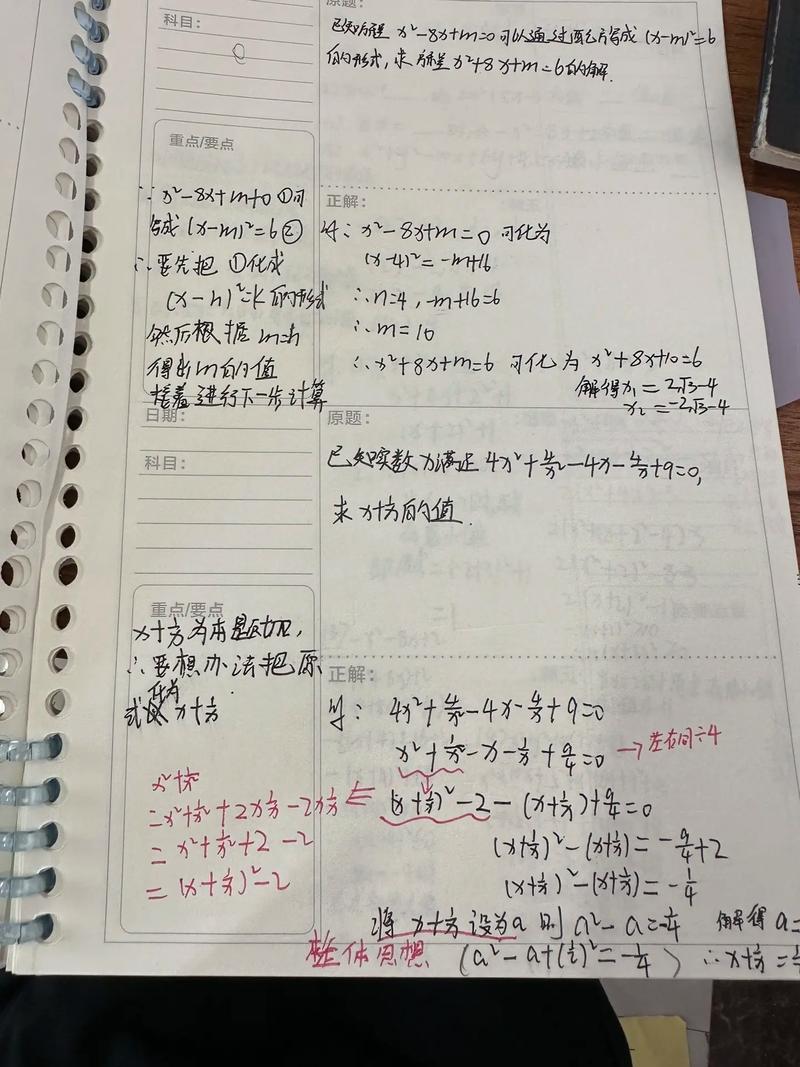 科目：
原题：
已知方程 x²-8x+m=0 可以通过配方写成 (x-m)²=6
的形式，求方程 x²+8x+m=6 的解.
重点/要点
∵x²-8x+m=0 ①可
写成 (x-m)²=6 ②
∴要先把 ①化成
(x-n)²=k 的形式
然后根据 m=n
得出 m 的值
接着进行下一步计算
正解：
解: x²-8x+m=0 可化为
(x-4)²=-m+16
∴n=4, -m+16=6
∴m=10
∴x²+8x+m=6 可化为 x²+8x+10=6
解得 x₁=2√3-4
x₂=-2√3-4
日期：
科目：
原题：
已知实数 x 满足 4x²+4/x²-4x-4/x+9=0,
求 x+1/x 的值.
重点/要点
x+1/x 为本题
∴要想办法把原
式 化为 x+1/x
x²+1/x²
=x²+1/x²+2x·1/x-2x·1/x
=x²+1/x²+2-2
=(x+1/x)²-2
正解：
解: 4x²+4/x²-4x-4/x+9=0
x²+1/x²-x-1/x+9/4=0 → 左右同÷4
⇐ (x+1/x)²-2-(x+1/x)+9/4=0
(x+1/x)²-(x+1/x)=-9/4+2
(x+1/x)²-(x+1/x)=-1/4
将 x+1/x 设为a 则 a²-a=-1/4 解得 a=
整体思想 (a²-a+(1/2)²=-1/4) ∴x+1/x=